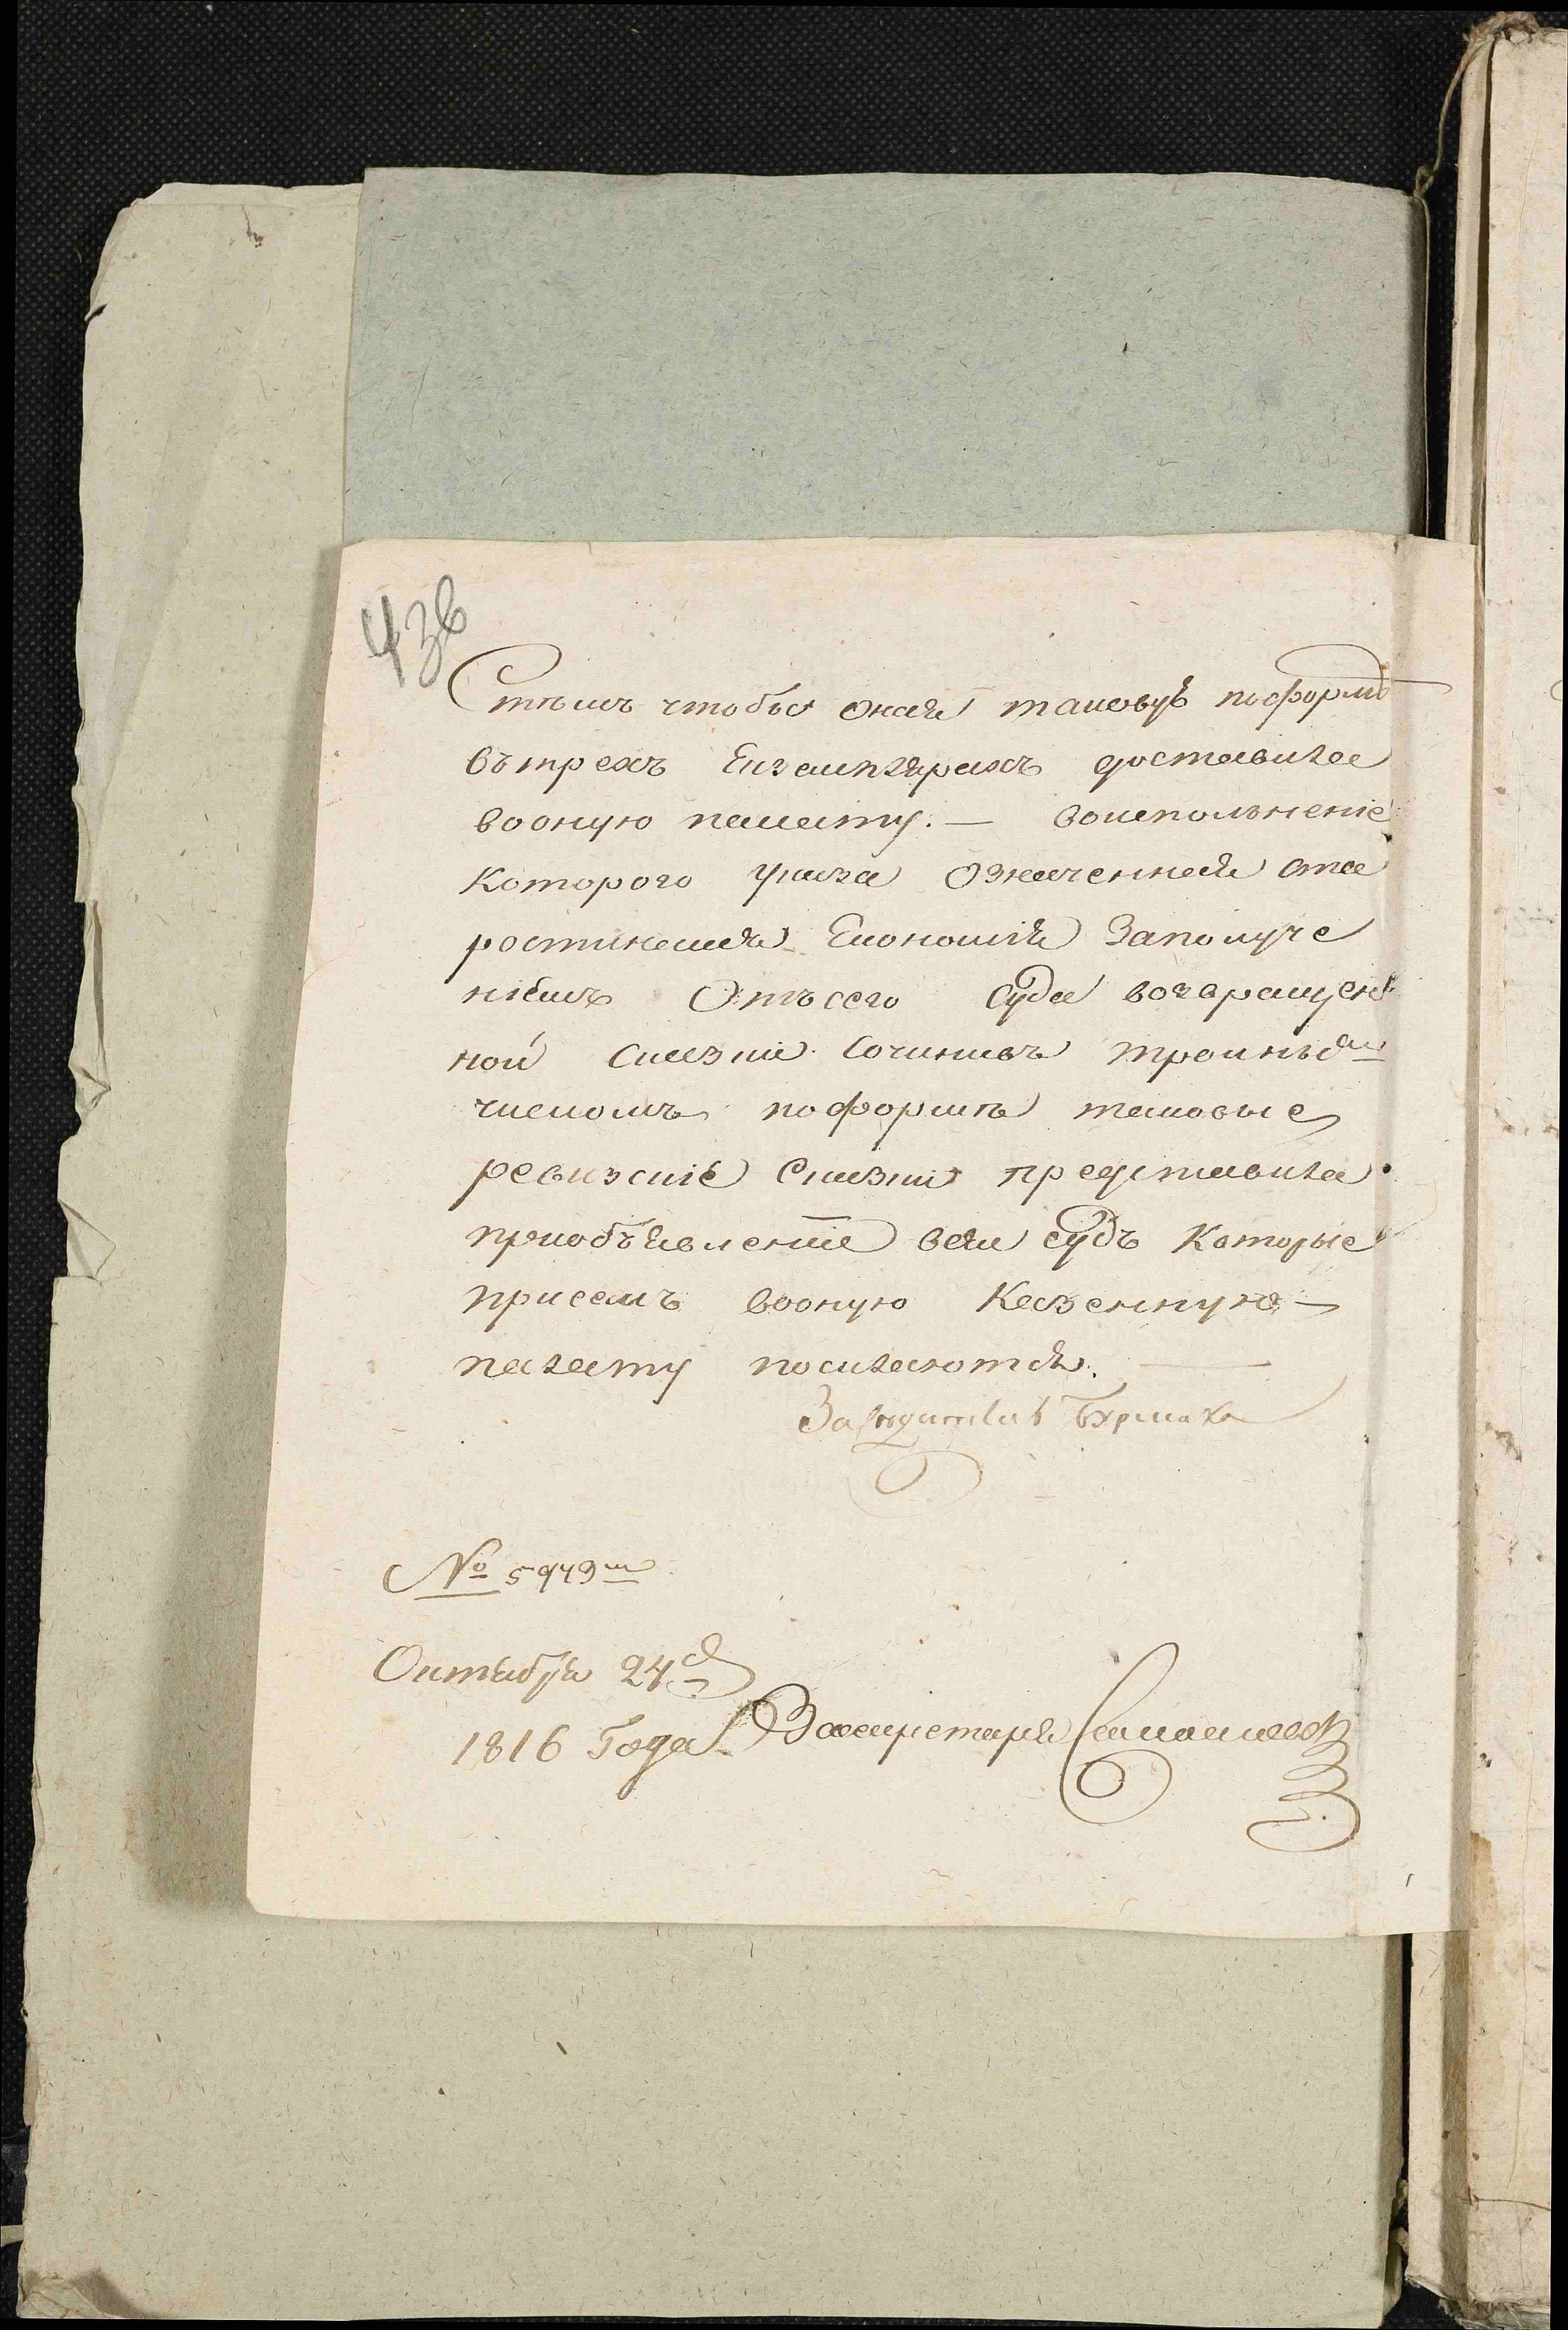 436
Стѣмъ чтобы оная таковуѣ поформѣ
въ трехъ Екземплярахъ доставила
вооную палату. — воисполънение
которого указа Означенная ста
ростинская Економія Заполуче
ніемъ Отъсего суда возвращен
ной Сказки Сочинивъ троинымъ
числомъ поформѣ таковые
ревизские Сказки представила
приобъявленіе всеи судъ Которые
присемъ вооную Казенную —
палату посилаются. —
№ 5949ш
Октября 24 д
1816 Года
Засекретаря